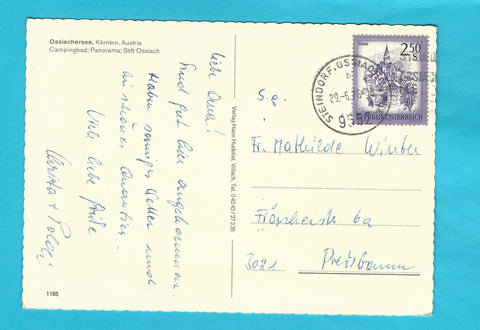 Ossiachersee, Kärnten, Austria
Campingbad; Panorama; Stift Ossiach
Liebe Oma!
Sind gut hier angekommen.
Haben sonniges Wetter und
ein schönes Quartier.
Viele liebe Grüße
Christa + Poldi
1185
Verlag Hans Hudelist, Villach, Tel. 04242/27335
STEINDORF, OSSIACH
9552
2.50
REPUBLIK ÖSTERREICH
Fr. Mathilde Winter
6a
3021 Preßbaum